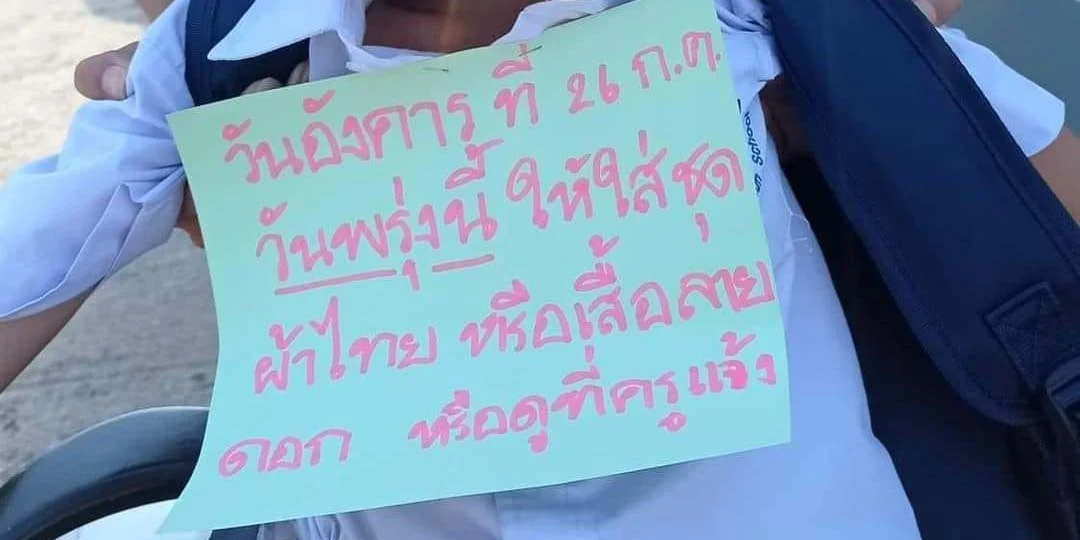 วันอังคาร ที่ 26 ก.ค.
วันพรุ่งนี้ ให้ใส่ชุด
ผ้าไทย หรือเสื้อลาย
ดอก หรือดูที่ครูแจ้ง
School